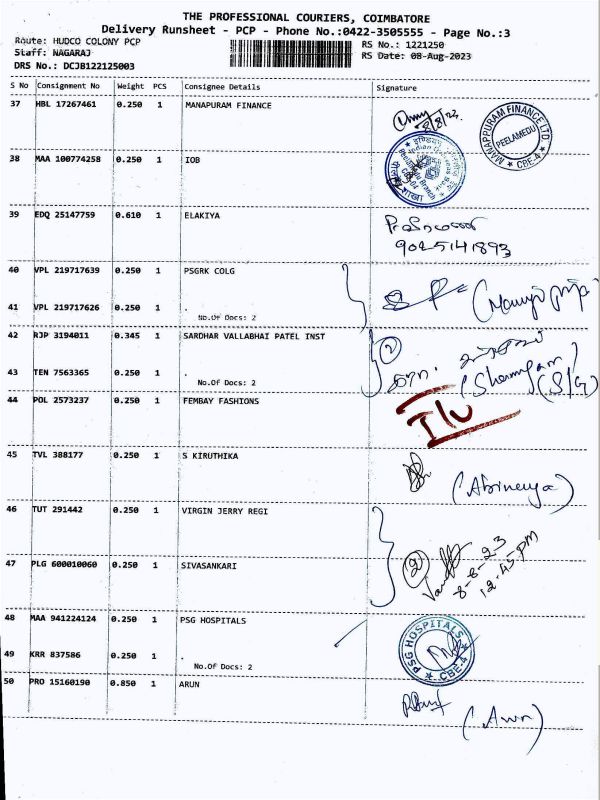 THE PROFESSIONAL COURIERS, COIMBATORE
Delivery Runsheet - PCP - Phone No.:0422-3505555 - Page No.:3
Route: HUDCO COLONY PCP
RS No.: 1221250
Staff: NAGARAJ
RS Date: 08-Aug-2023
DRS No.: DCJB122125003
S No Consignment No Weight PCS Consignee Details Signature
37 HBL 17267461 0.250 1 MANAPURAM FINANCE
8/8/23
MANAPPURAM FINANCE LTD. PEELAMEDU CBE-4
38 MAA 100774258 0.250 1 IOB
39 EDQ 25147759 0.610 1 ELAKIYA
9025141893
40 VPL 219717639 0.250 1 PSGRK COLG
41 VPL 219717626 0.250 1 .
No.Of Docs: 2
42 RJP 3194011 0.345 1 SARDHAR VALLABHAI PATEL INST
2
43 TEN 7563365 0.250 1 .
No.Of Docs: 2
(S/G)
44 POL 2573237 0.250 1 FEMBAY FASHIONS
45 TVL 388177 0.250 1 S KIRUTHIKA
(Abinenya)
46 TUT 291442 0.250 1 VIRGIN JERRY REGI
47 PLG 600010060 0.250 1 SIVASANKARI
2
8-8-23
12.45 PM
48 MAA 941224124 0.250 1 PSG HOSPITALS
PSG HOSPITALS CBE-4
49 KRR 837586 0.250 1 .
No.Of Docs: 2
50 PRO 15160190 0.850 1 ARUN
(Arun)